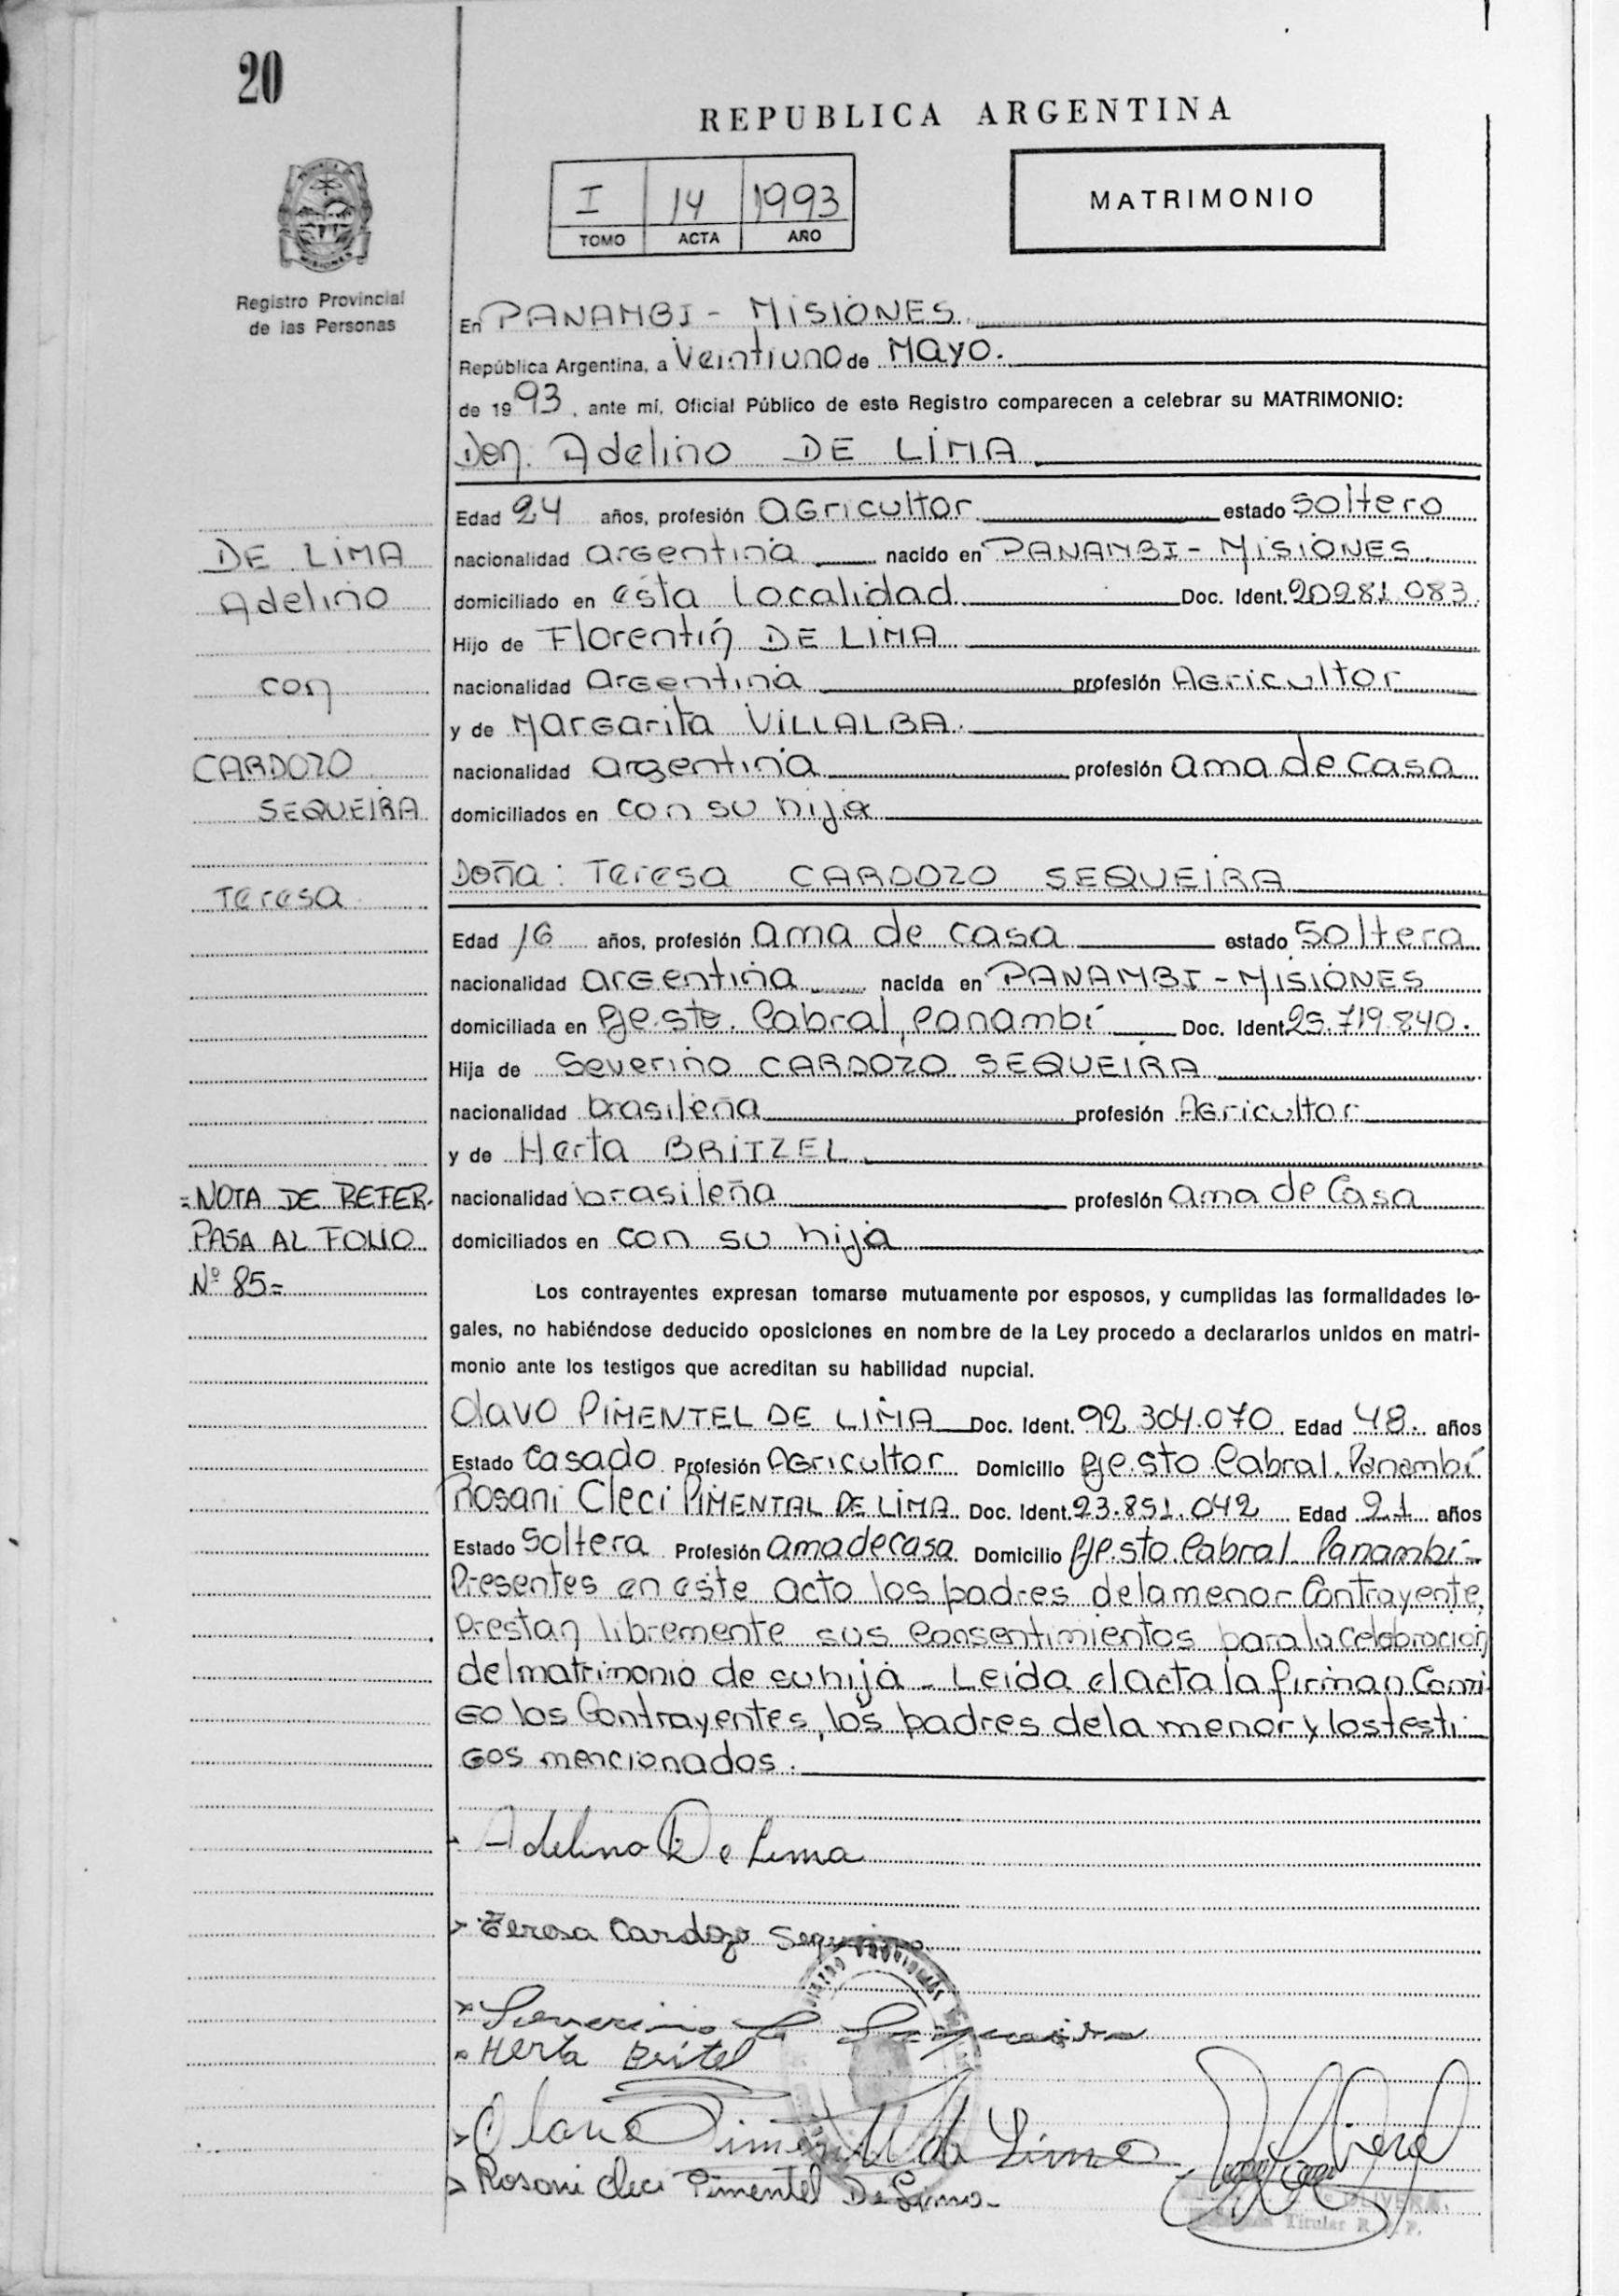 20
REPUBLICA ARGENTINA
I 14 1993
TOMO ACTA AÑO
MATRIMONIO
MISIONES
Registro Provincial
de las Personas
En PANAMBI - MISIONES.
República Argentina, a Veintiuno de MAYO.
de 1993, ante mí, Oficial Público de este Registro comparecen a celebrar su MATRIMONIO:
Don. Adelino DE LIMA
Edad 24 años, profesión AGricultor estado Soltero
DE LIMA
nacionalidad argentina nacido en PANAMBI - MISIONES.
Adelino
domiciliado en esta Localidad Doc. Ident. 20281.083.
Hijo de Florentín DE LIMA
con
nacionalidad Argentina profesión AGricultor
y de MARGARITA VILLALBA.
CARDOZO
nacionalidad argentina profesión ama de Casa
SEQUEIRA
domiciliados en con su hija
Doña: Teresa CARDOZO SEQUEIRA
Teresa
Edad 16 años, profesión ama de casa estado Soltera
nacionalidad argentina nacida en PANAMBI - MISIONES
domiciliada en Pje. Sto. Cabral, Panambí Doc. Ident. 25.719.840.
Hija de Severino CARDOZO SEQUEIRA
nacionalidad brasileña profesión AGricultor
y de Herta BRITZEL
=NOTA DE REFER.
nacionalidad brasileña profesión ama de Casa
PASA AL FOLIO
domiciliados en con su hija
Nº 85=
Los contrayentes expresan tomarse mutuamente por esposos, y cumplidas las formalidades le-
gales, no habiéndose deducido oposiciones en nombre de la Ley procedo a declararlos unidos en matri-
monio ante los testigos que acreditan su habilidad nupcial.
Olavo PIMENTEL DE LIMA Doc. Ident. 92.304.070 Edad 48. años
Estado Casado Profesión AGricultor Domicilio Pje. Sto Cabral. Panambí
Rosani Cleci PIMENTAL DE LIMA. Doc. Ident. 23.851.042 Edad 21 años
Estado Soltera Profesión ama de casa. Domicilio Pje. Sto. Cabral. Panambí-
Presentes en este acto los padres de la menor Contrayente,
Prestan libremente sus Consentimientos para la Celebración
del matrimonio de su hija - Leída el acta la firman Conmi-
Go los Contrayentes, los padres de la menor y los testi-
Gos mencionados.
Adelino De Lima
Teresa Cardozo Sequeira
Severino C Sequeira
Herta Britel
Olavo Pimentel de Lima
Rosani Cleci Pimentel De Lima-
OLIVERA
Titular R. P. P.